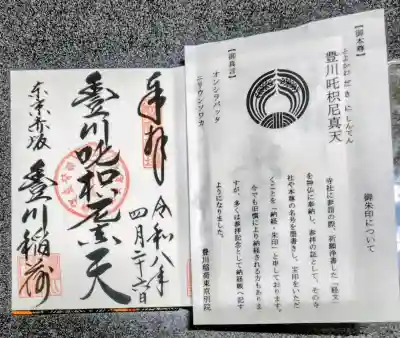 奉拝
令和八年
四月二十六日
豊川吒枳尼真天
東京赤坂
豊川稲荷
【御本尊】
とよかわだきにしんてん
豊川吒枳尼真天
【御真言】
オンシラバッタ
ニリウンソワカ
御朱印について
寺社に参詣の際、祈願浄書した「経文」
を神仏に奉納し、参拝の証として、その寺
社や本尊の名号を墨書きし、宝印をいただ
くことを「納経・朱印」と申しております。
今でも旧慣により納経される方もありま
すが、多くは参拝記念として納経帳へ記す
ようになりました。
豊川稲荷東京別院